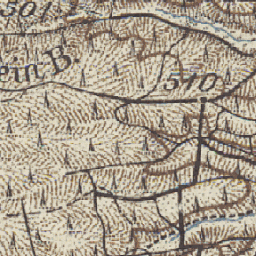 501
ein B.
510